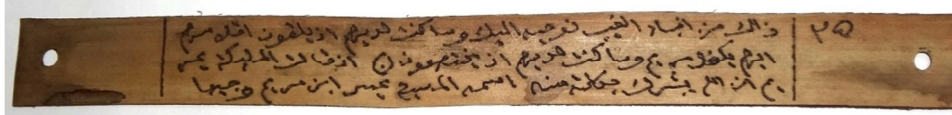 ٣٥
ذالك من انباء الغيب نوحيه اليك وما كنت لديهم اذ يلقون اقلامهم
ايهم يكفل مريم وما كنت لديهم اذ يختصمون ۝ اذ قالت الملئكة يمر
يم ان الله يبشرك بكلمة منه اسمه المسيح عيسى ابن مريم وجيها